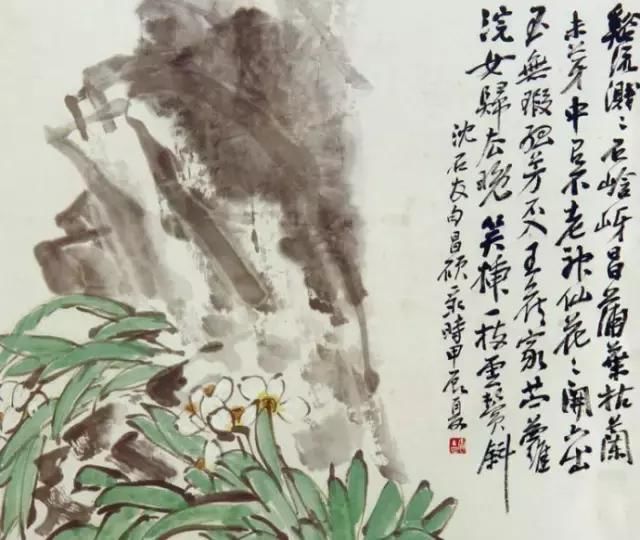 谿流濺〻石峆岈昌蒲葉枯蘭
未芽中有不老神仙花〻開六出
玉無瑕孤芳不入王侯家苎蘿
浣女歸去晚笑插一枝雲鬢斜
沈石友句昌碩录時甲辰夏